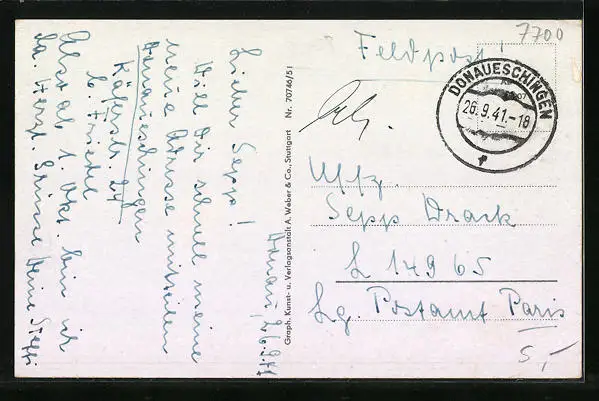 Donau, 26.9.41
Lieber Sepp!
Will Dir schnell meine
neue Adresse mitteilen
Donaueschingen
Käferstr. 24
b. Friedel
Also ab 1. Okt. bin ich
da. Herzl. Grüsse Deine Steffi
Graph. Kunst- u. Verlagsanstalt A. Weber & Co., Stuttgart Nr. 70746/51
7700
Feldpost!
DONAUESCHINGEN
26.9.41.-18
f
Uffz.
Sepp Drack
L 14965
Lg. Postamt Paris
5,-